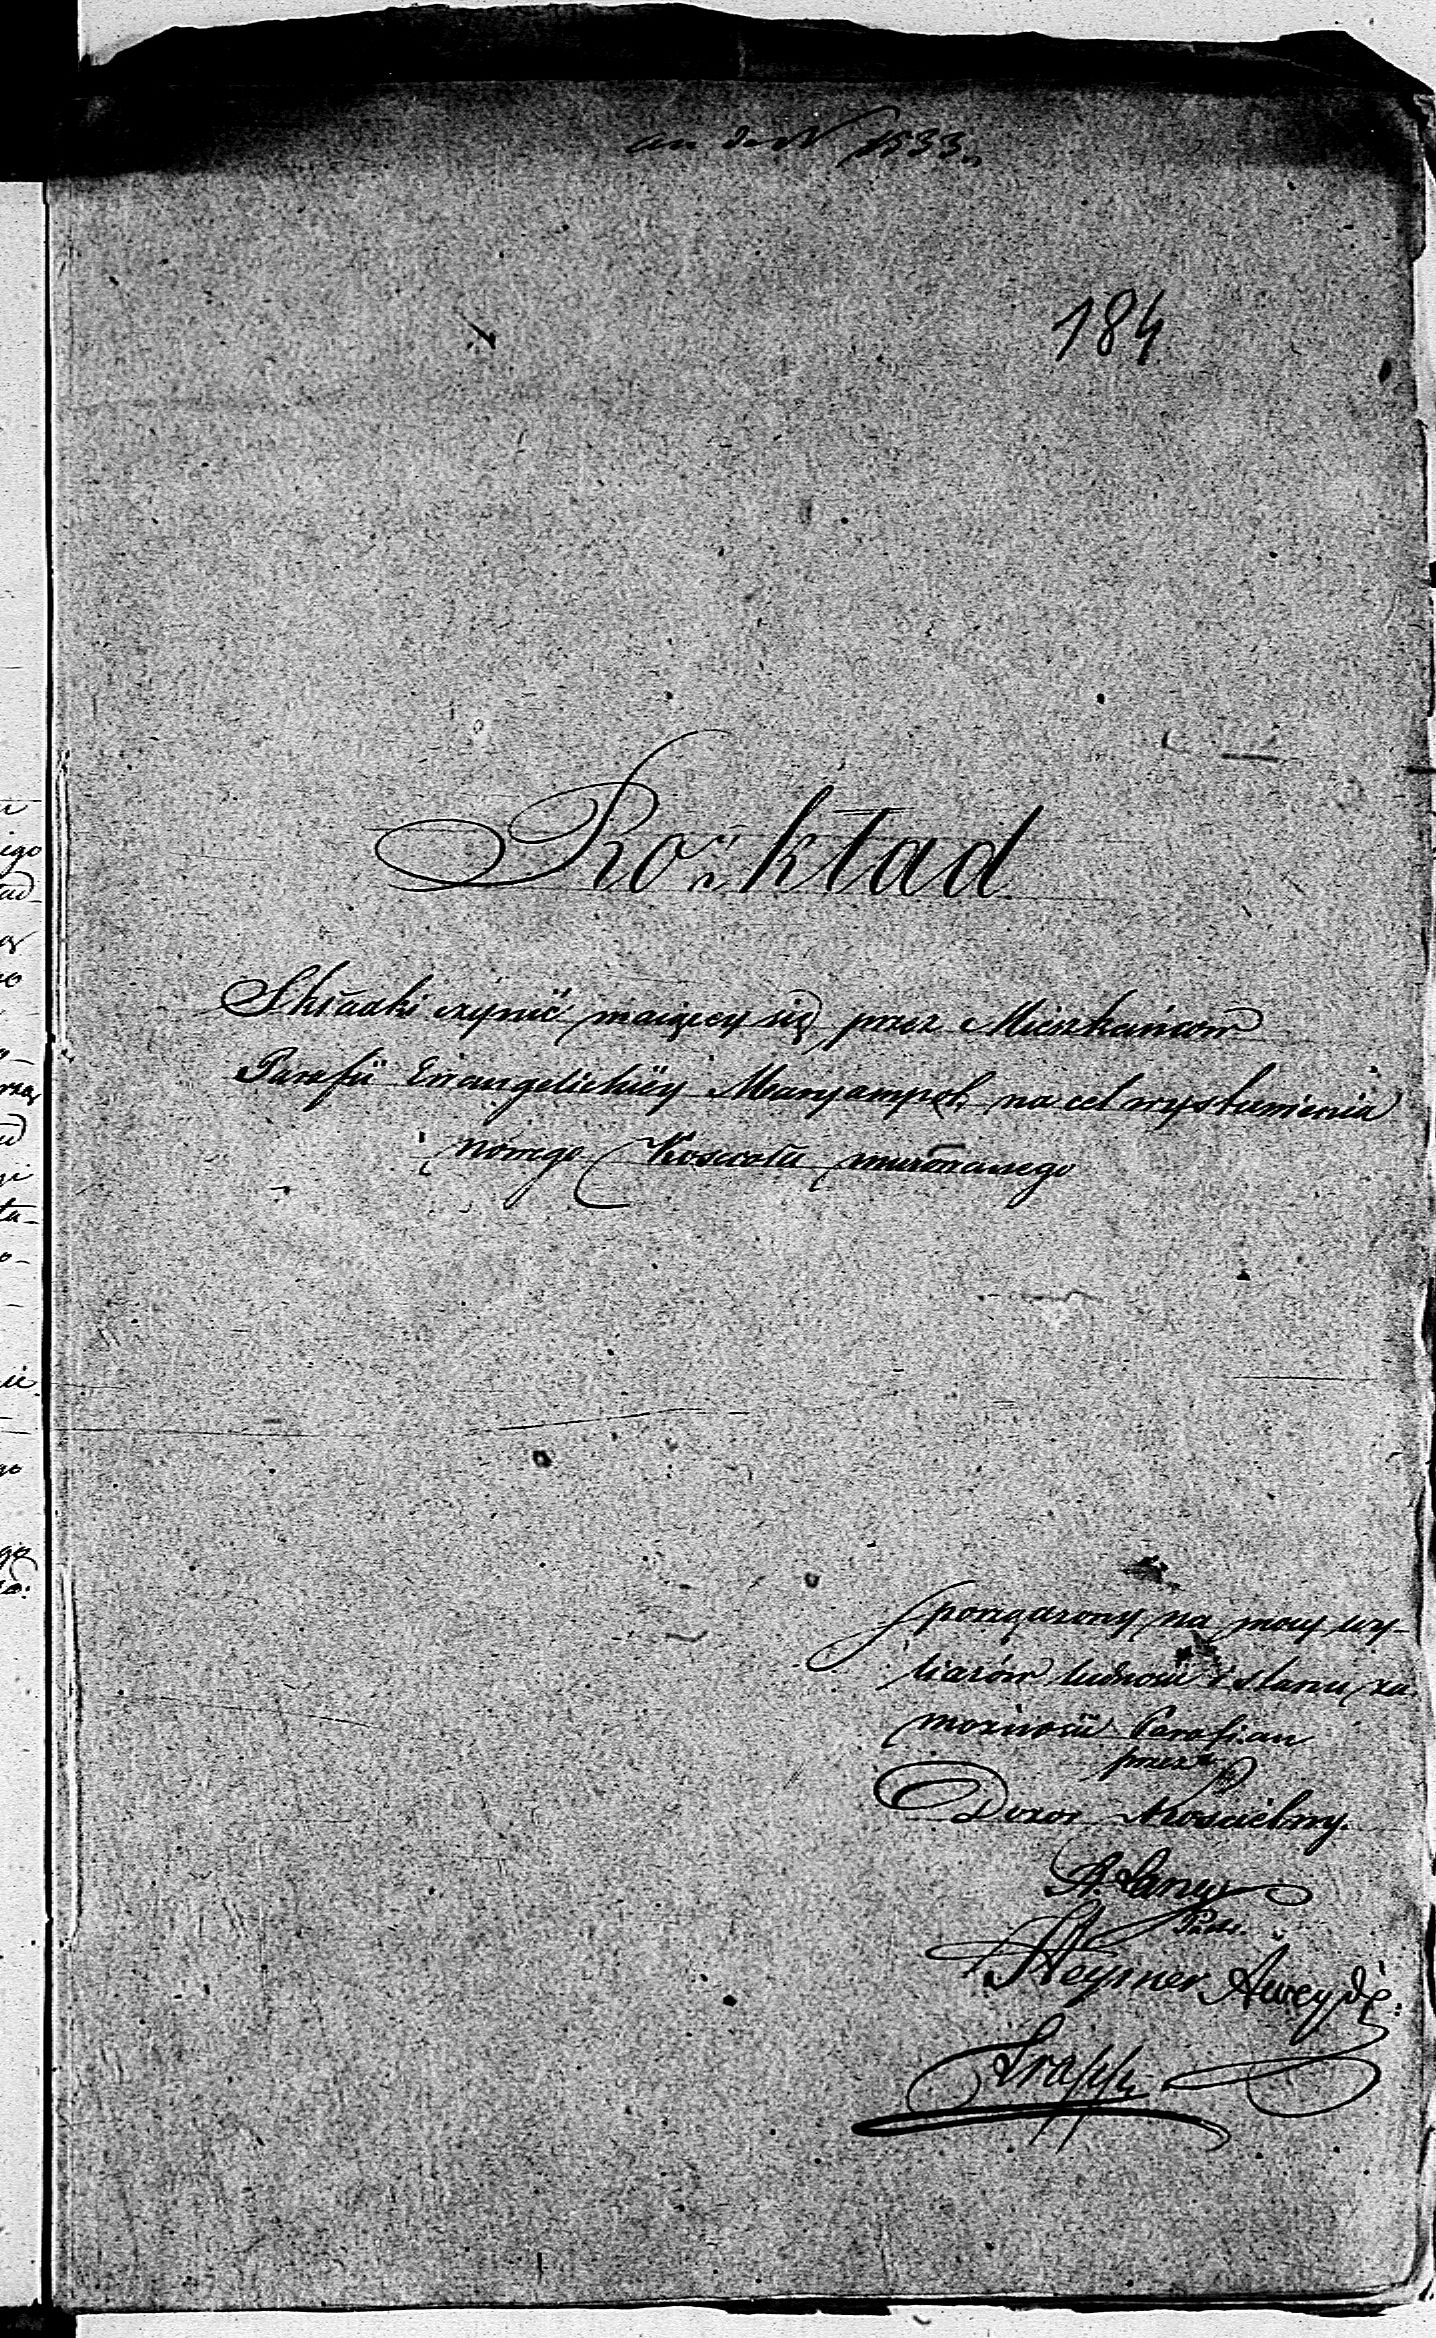 1533
184
Rozkład
Składki czynić maiącey się przez Mieszkańców
Parafii Ewangelickiéy Maryampol. na cel wystawienia
nowego Kosciołu murowanego
sporządzony na mocy wy-
kazów ludności i stanu za-
możności Parafian
przez
Dozor Kościelny.
A. Lany
Past.
Heymer Aweyde
Trapp